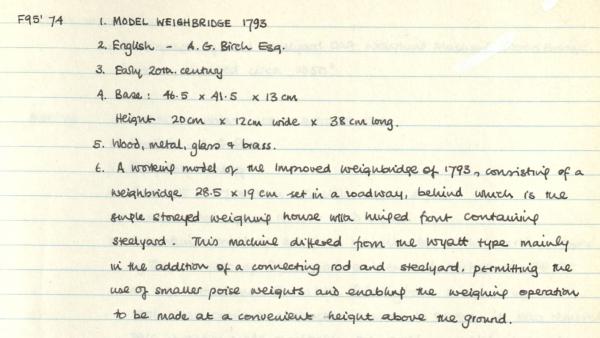 F95' 74 1. MODEL WEIGHBRIDGE 1793
2. English - A.G. Birch Esq.
3. Early 20th. century
4. Base: 46.5 x 41.5 x 13 cm
Height 20cm x 12cm wide x 38cm long.
5. Wood, metal, glass & brass.
6. A working model of the Improved weighbridge of 1793, consisting of a
weighbridge 28.5 x 19 cm set in a roadway, behind which is the
single storeyed weighing house with hinged font containing
steelyard. This machine differed from the Wyatt type mainly
in the addition of a connecting rod and steelyard, permitting the
use of smaller poise weights and enabling the weighing operation
to be made at a convenient height above the ground.